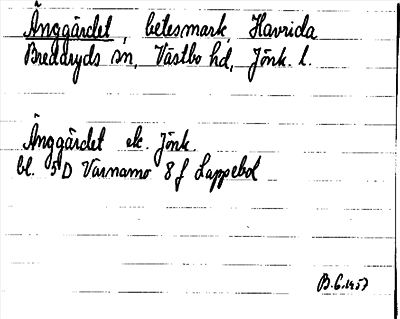 Änggärdet, betesmark, Havrida
Bredaryds sn, Västbo hd, Jönk. l.
Änggärdet ek. Jönk.
bl. 5D Värnamo 8 f Lappebol
B.G.1957